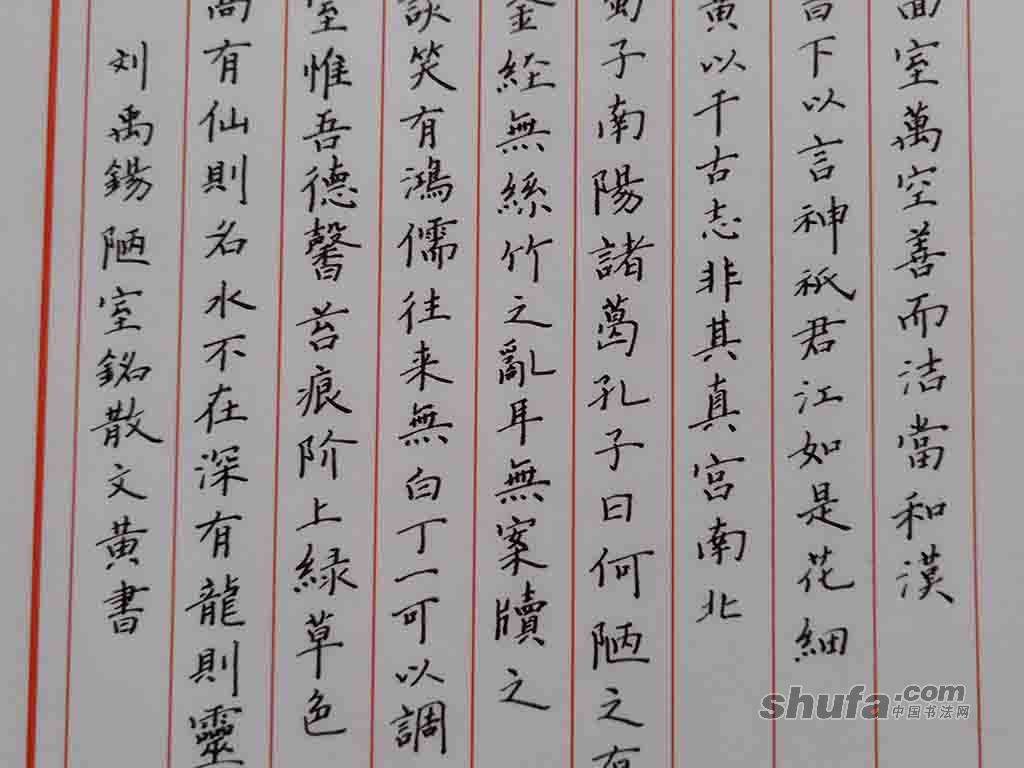 刘禹錫陋室銘散文黄書
高有仙則名水不在深有龍則靈
室惟吾德馨苔痕阶上緑草色
談笑有鴻儒往来無白丁一可以調
金経無絲竹之亂耳無案牘之
子南陽諸葛孔子曰何陋之有
黄以干古志非其真宫南北
下以言神祇君江如是花細
面室萬空善而洁當和漢
shufa.com
中国书法网